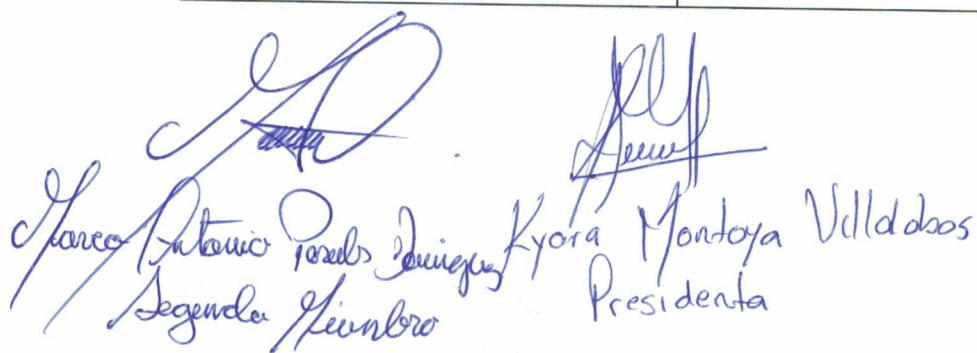 Marco Antonio Posels Dominguez
Segundo Miembro
Kyora Montoya Villalobos
Presidenta